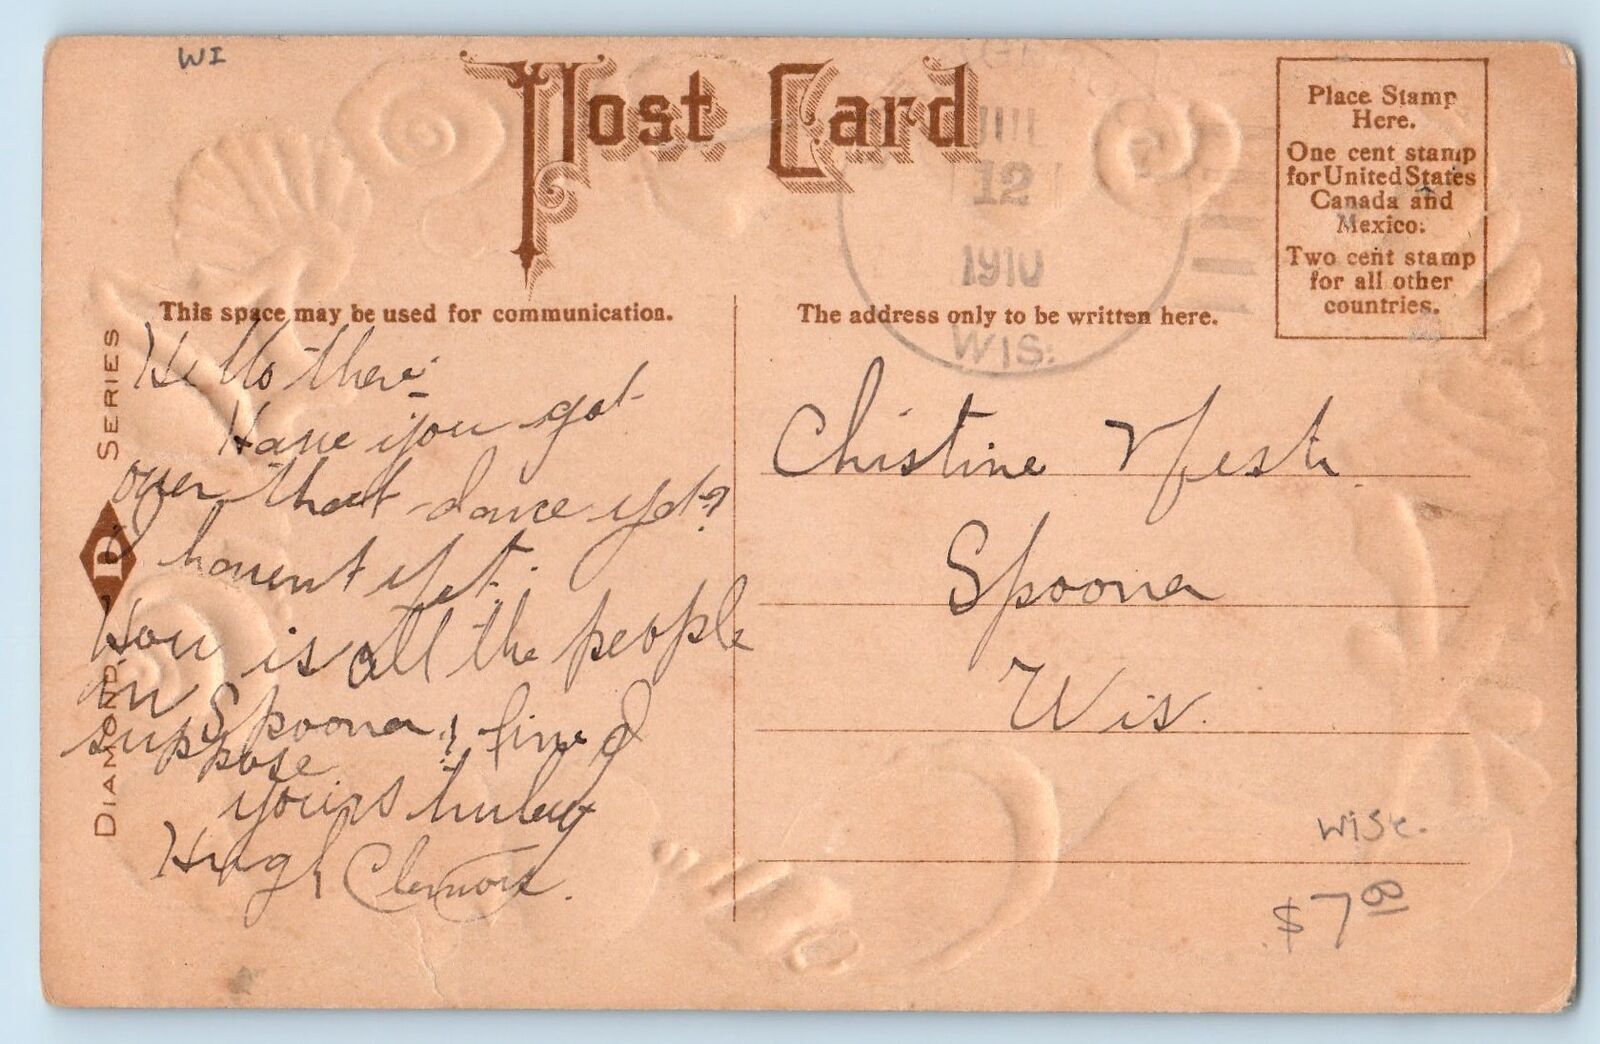 WI
Post Card
Place Stamp
Here.
One cent stamp
for United States
Canada and
Mexico.
Two cent stamp
for all other
countries.
12
1910
WIS.
This space may be used for communication.
The address only to be written here.
DIAMOND D SERIES
Hello there
Have you got
over that dance yet?
I havent yet.
How is all the people
in Spoona! fine I
suppose
yours
Hugh
Christine
Spoona
Wis.
Wisc.
$7 00